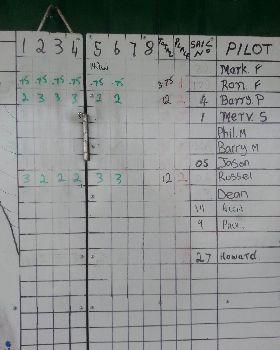 1 2 3 4 5 6 7 8 SAIL No PILOT
Mark. F
.75 .75 .75 .75 .75 .75 3.75 1 Ron. F
2 3 3 3 2 2 12 2 4 Barry. P
1 Merv. S
Phil. M
Barry M
05 Jason
3 2 2 2 3 3 12 2 Russel
Dean
9
27 Howard